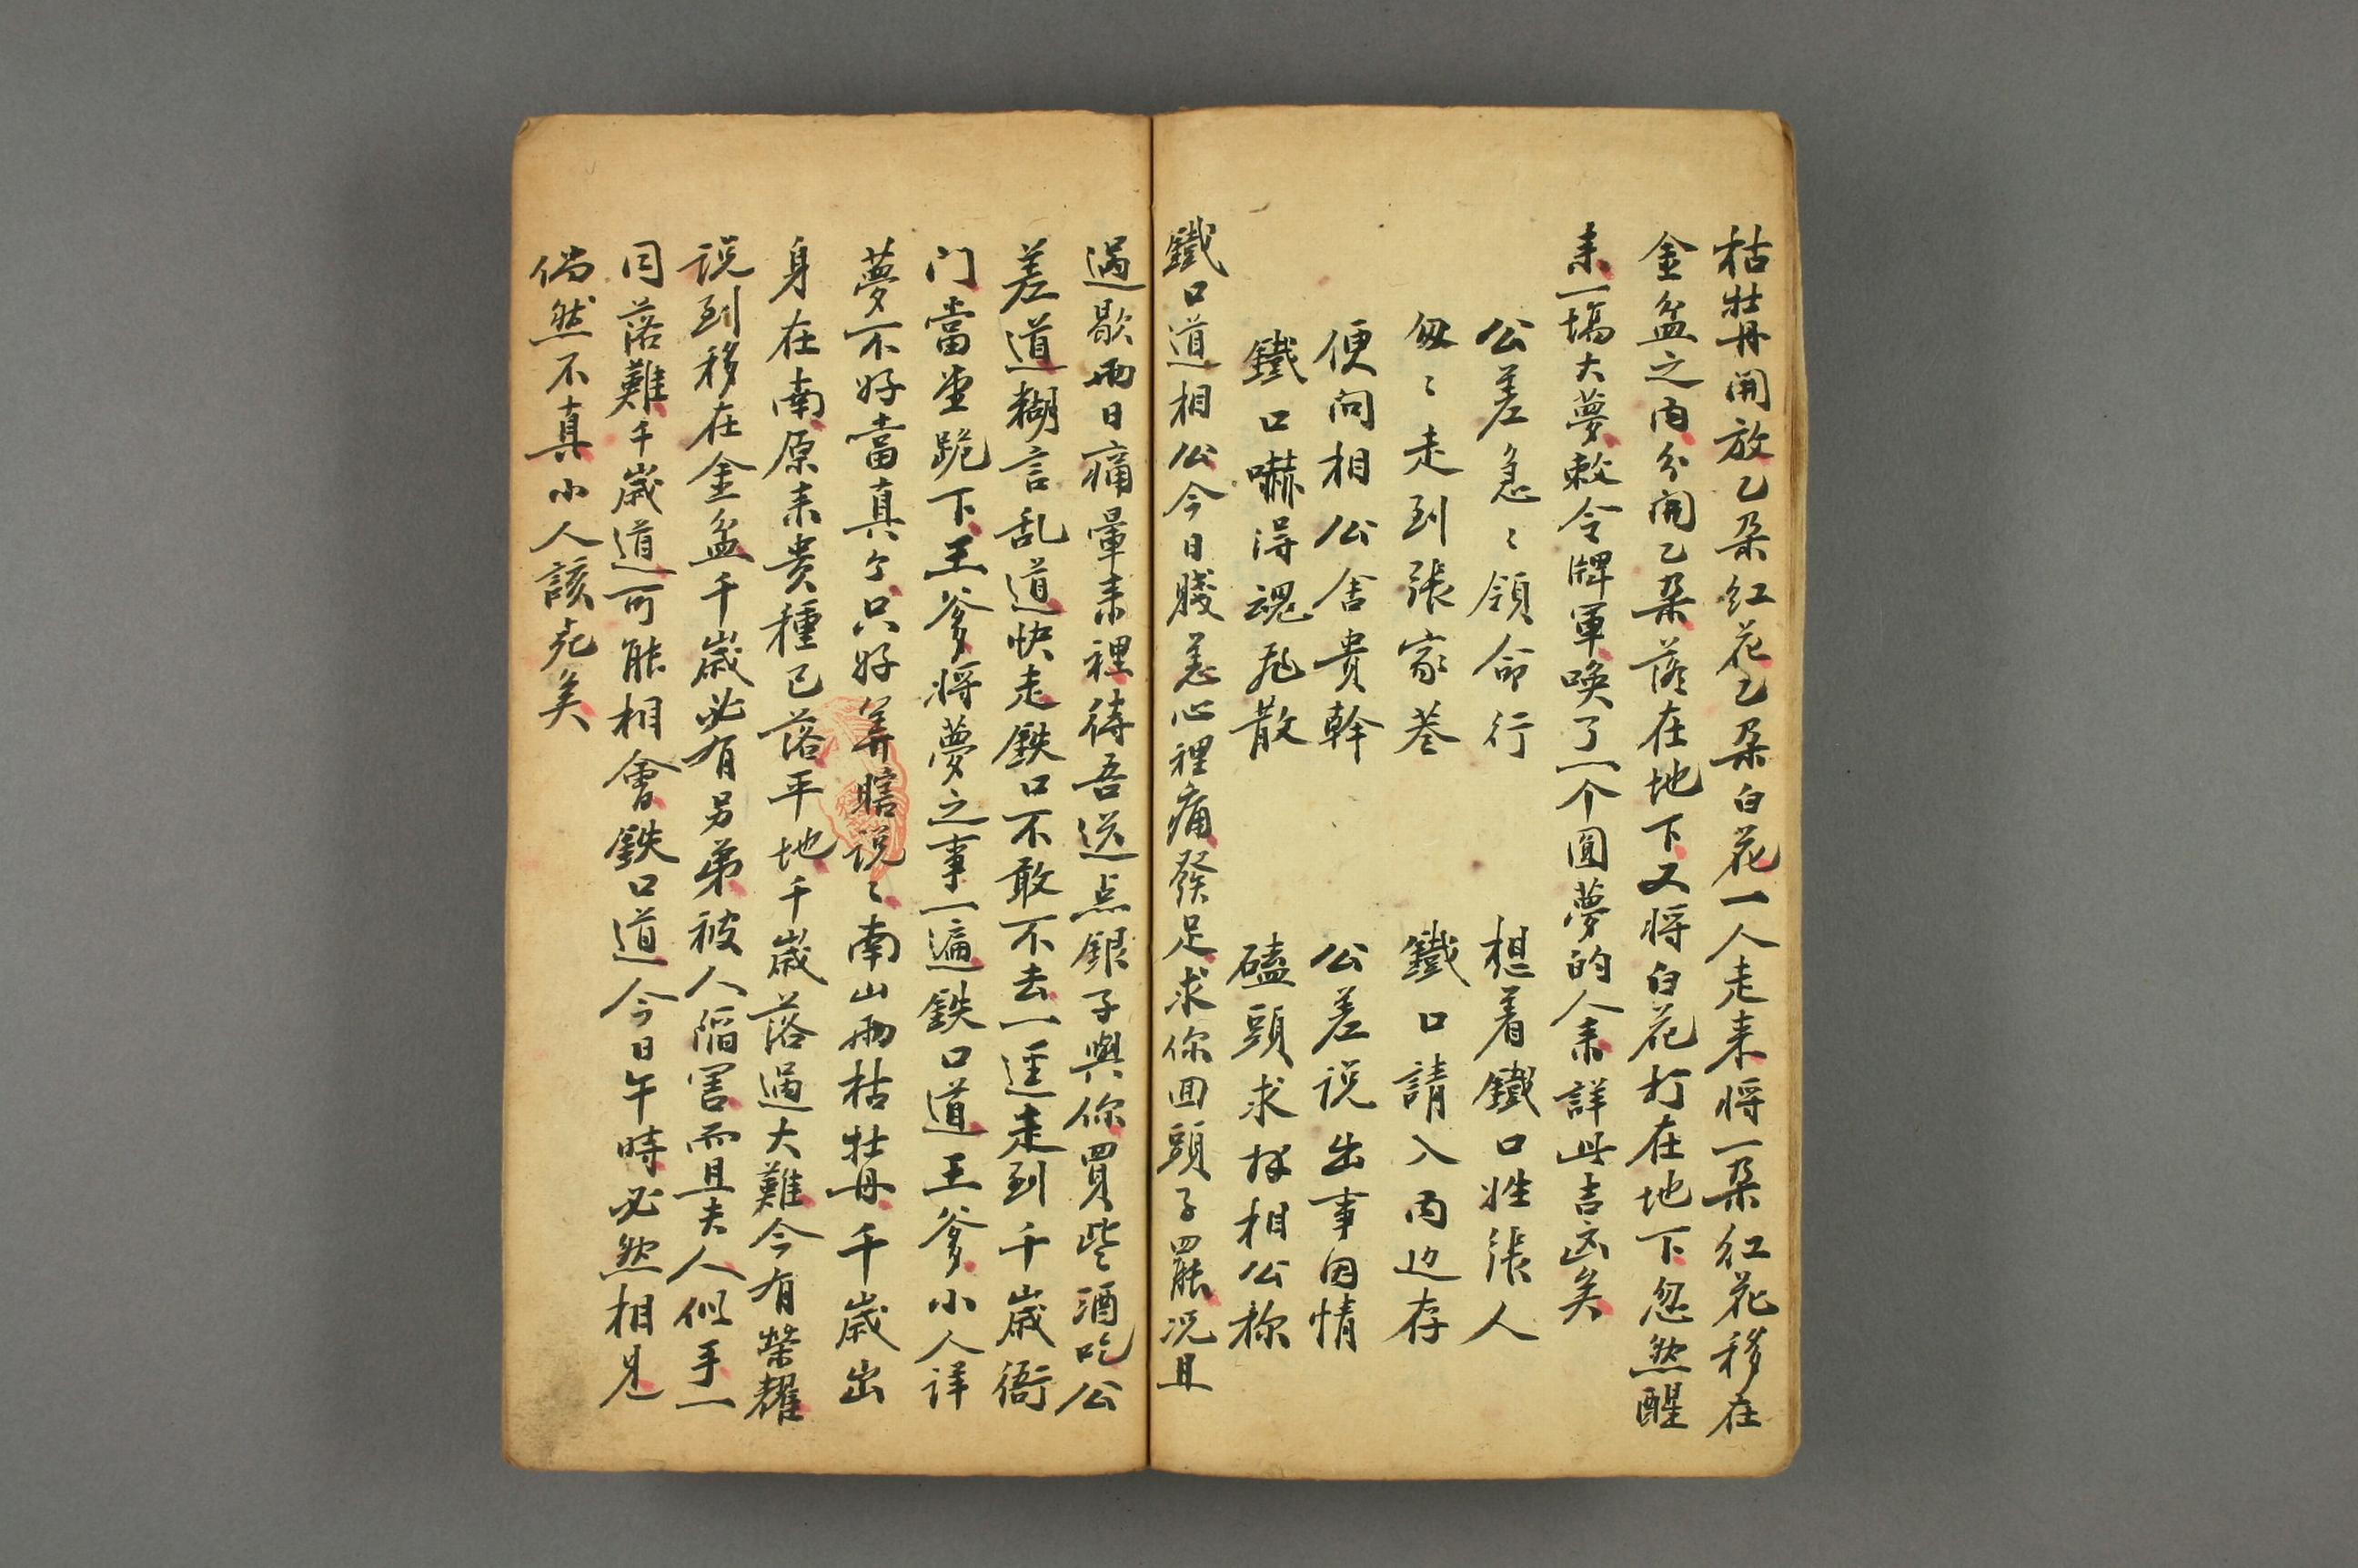 枯牡丹開放乙朵紅花乙朵白花一人走来将一朵紅花移在
金盆之内分開乙朵落在地下又将白花打在地下忽然醒
来一塲大夢敕令牌軍唤了一个圓夢的人来詳此吉凶矣
公差急〻領命行 想着鐵口姓張人
匆〻走到張家巷 鐵口請入两边存
便问相公舍貴幹 公差说出事因情
鐵口嚇得魂飛散 磕頭求拜相公称
鐵口道相公今日賤恙心裡痛發足求你回頭子罷况且
過歇两日痛暈来裡待吾送点銀子與你買些酒吃公
差道糊言乱道快走鉄口不敢不去一逕走到千歳衙
门當堂跪下王爹将夢之事一遍鉄口道王爹小人详
夢不好當真个只好算瞎说〻南山两枯牡丹千歳出
身在南原来贵種已落平地千歳落過大難今有榮耀
说到移在金盆千歳必有另弟被人陷害而且夫人似乎一
同落難千歳道可能相會鉄口道今日午時必然相见
倘然不真小人該死矣